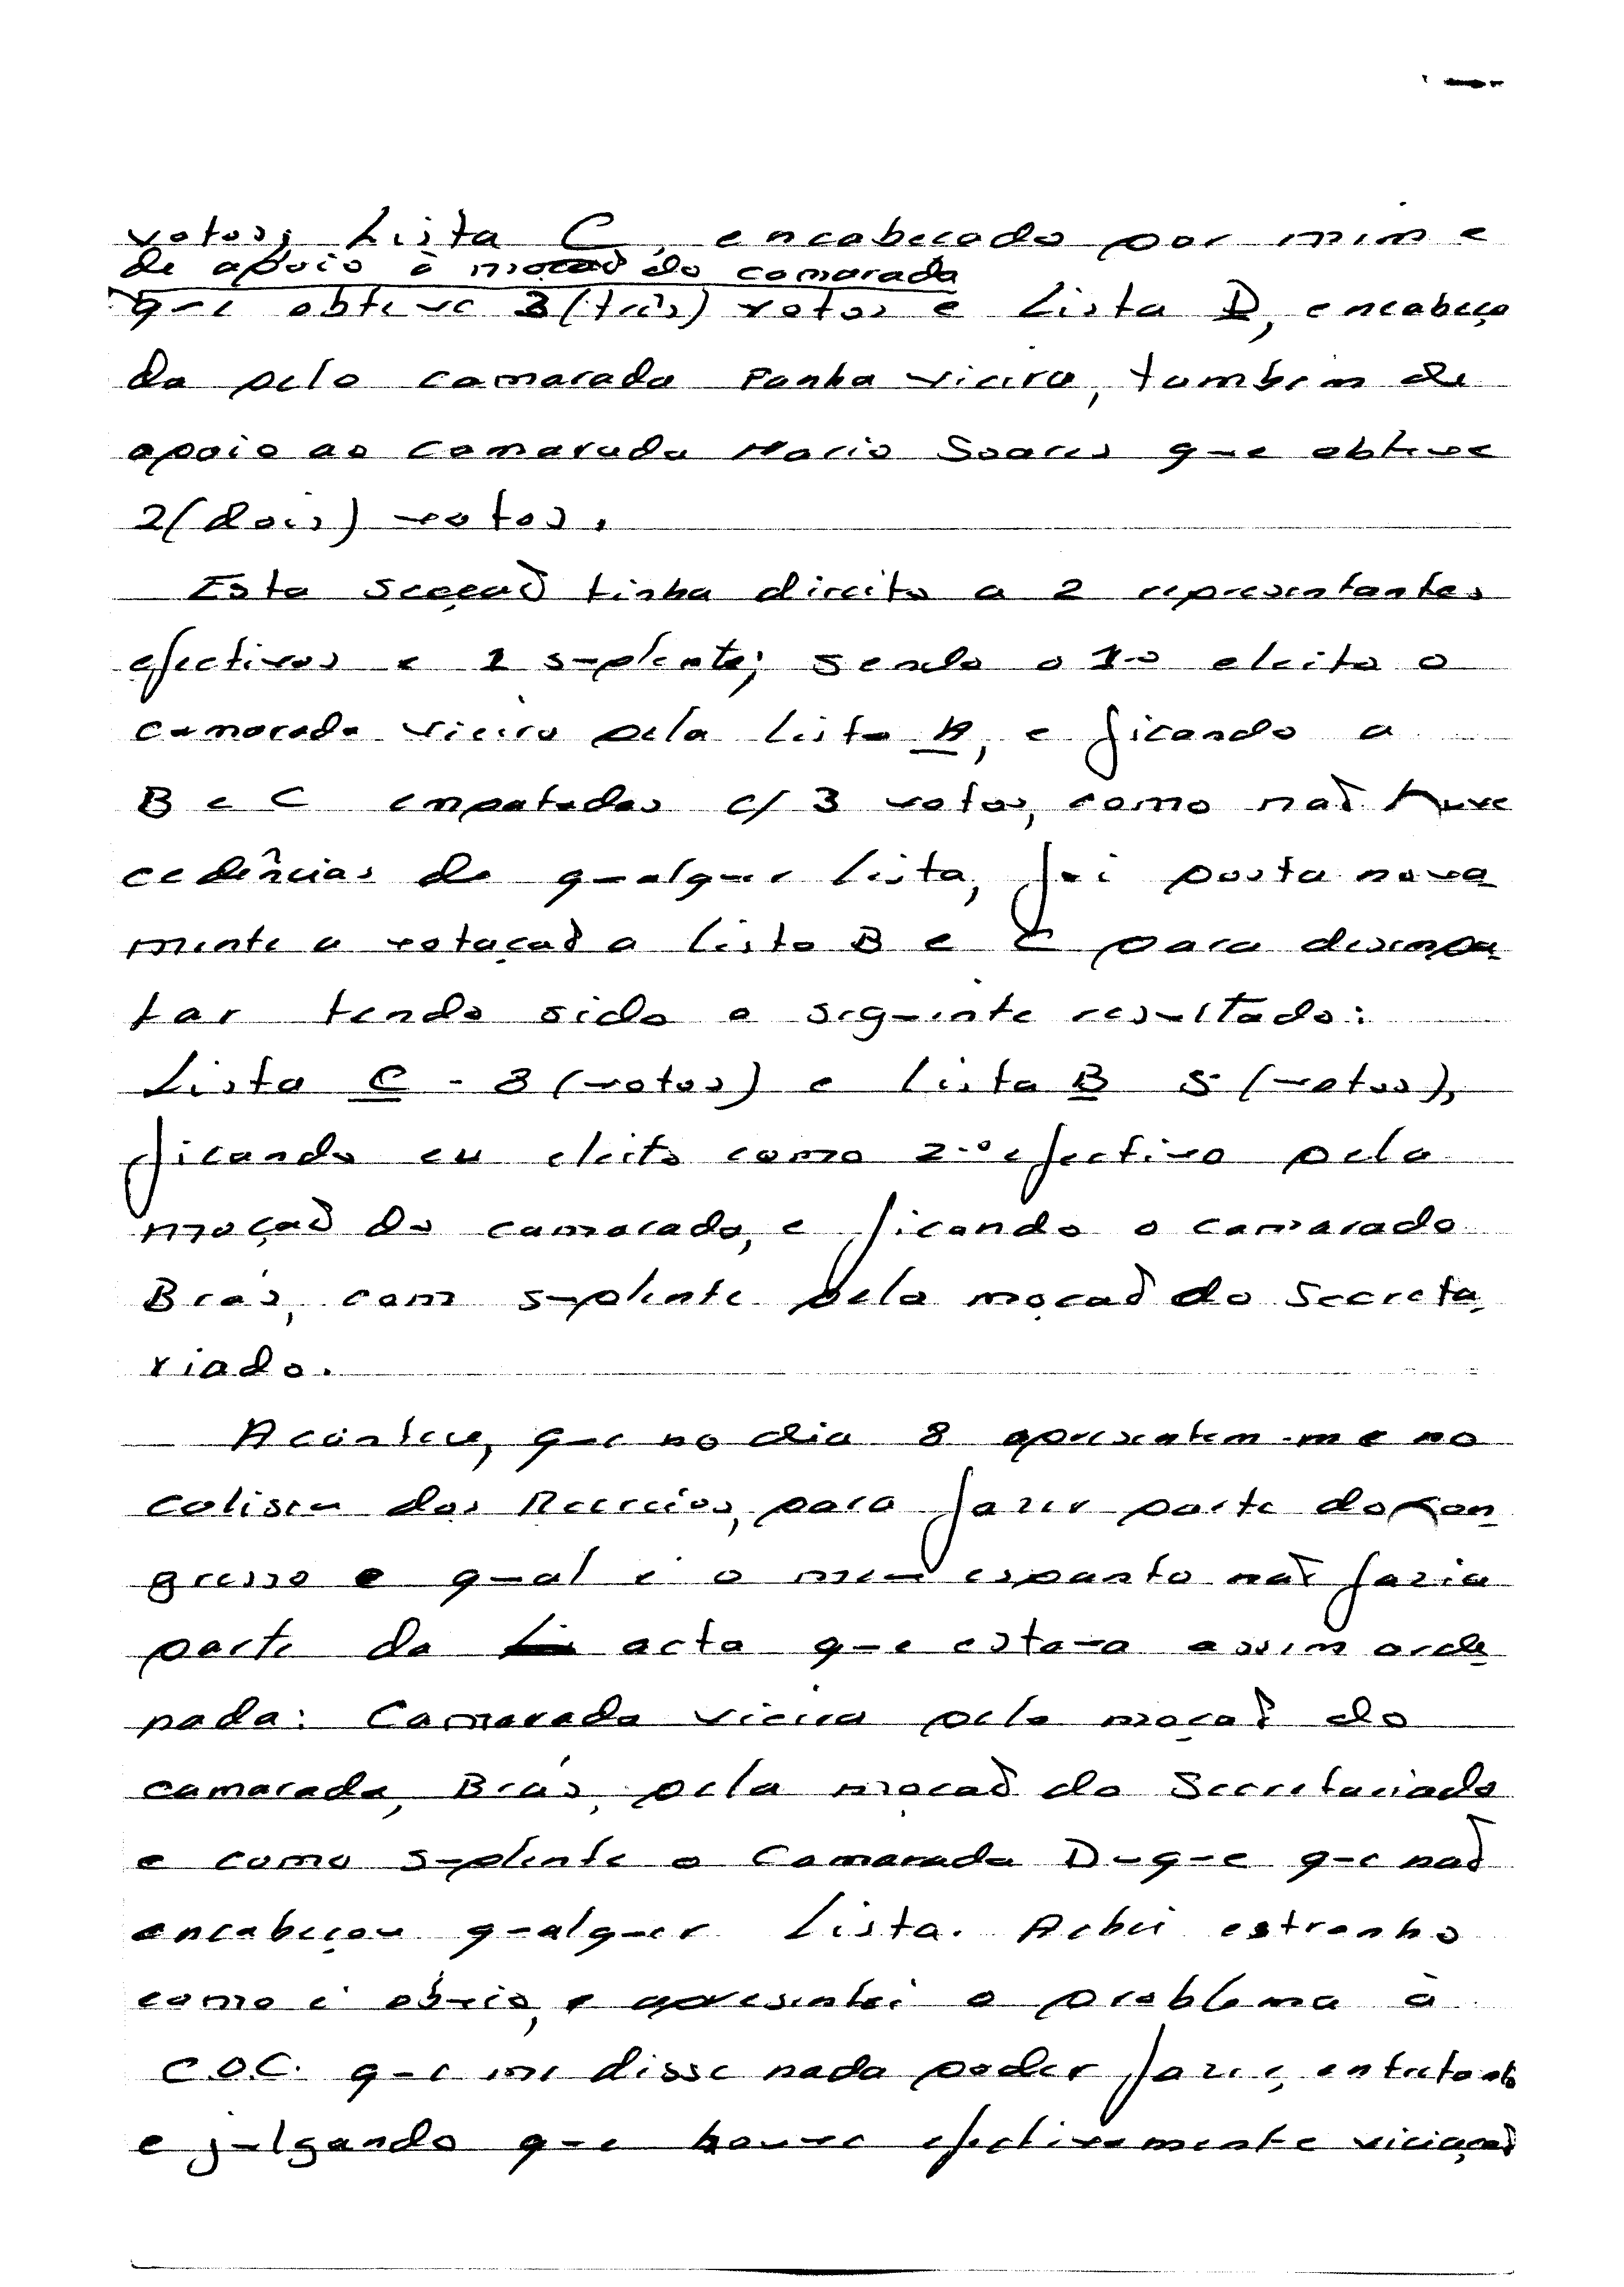 votos; Lista C, encabeçado por mim e
de apoio à moção do camarada
que obteve 3 (três) votos e Lista D, encabeça
da pelo camarada Panha Vieira, também de
apoio ao camarada Mario Soares que obteve
2 (dois) votos.
Esta secção tinha direito a 2 representantes
efectivos e 1 suplente; sendo o 1.º eleito o
camarada Vieira pela lista A, e ficando a
B e C empatadas c/ 3 votos, como não houve
cedências de qualquer lista, foi posta nova
mente a votação a lista B e C para desempa
tar tendo sido o seguinte resultado:
Lista C - 8 (votos) e lista B 5 (votos),
ficando eu eleito como 2.º efectivo pela
moção do camarada, e ficando o camarada
Brás, com suplente pela moção do Secreta
riado.
Acontece, que no dia 8 apresentem-me no
coliseu dos Recreios, para fazer parte do Con
gresso e qual é o meu espanto não fazia
parte da acta que estava assim orde
nada: Camarada Vieira pela moção do
camarada, Brás, pela moção do Secretariado
e como suplente o Camarada Duque que não
encabeçou qualquer Lista. Achei estranho
como é óbvio, e apresentei o problema à
C.O.C. que me disse nada poder fazer, entretanto
e julgando que houve efectivamente viciação